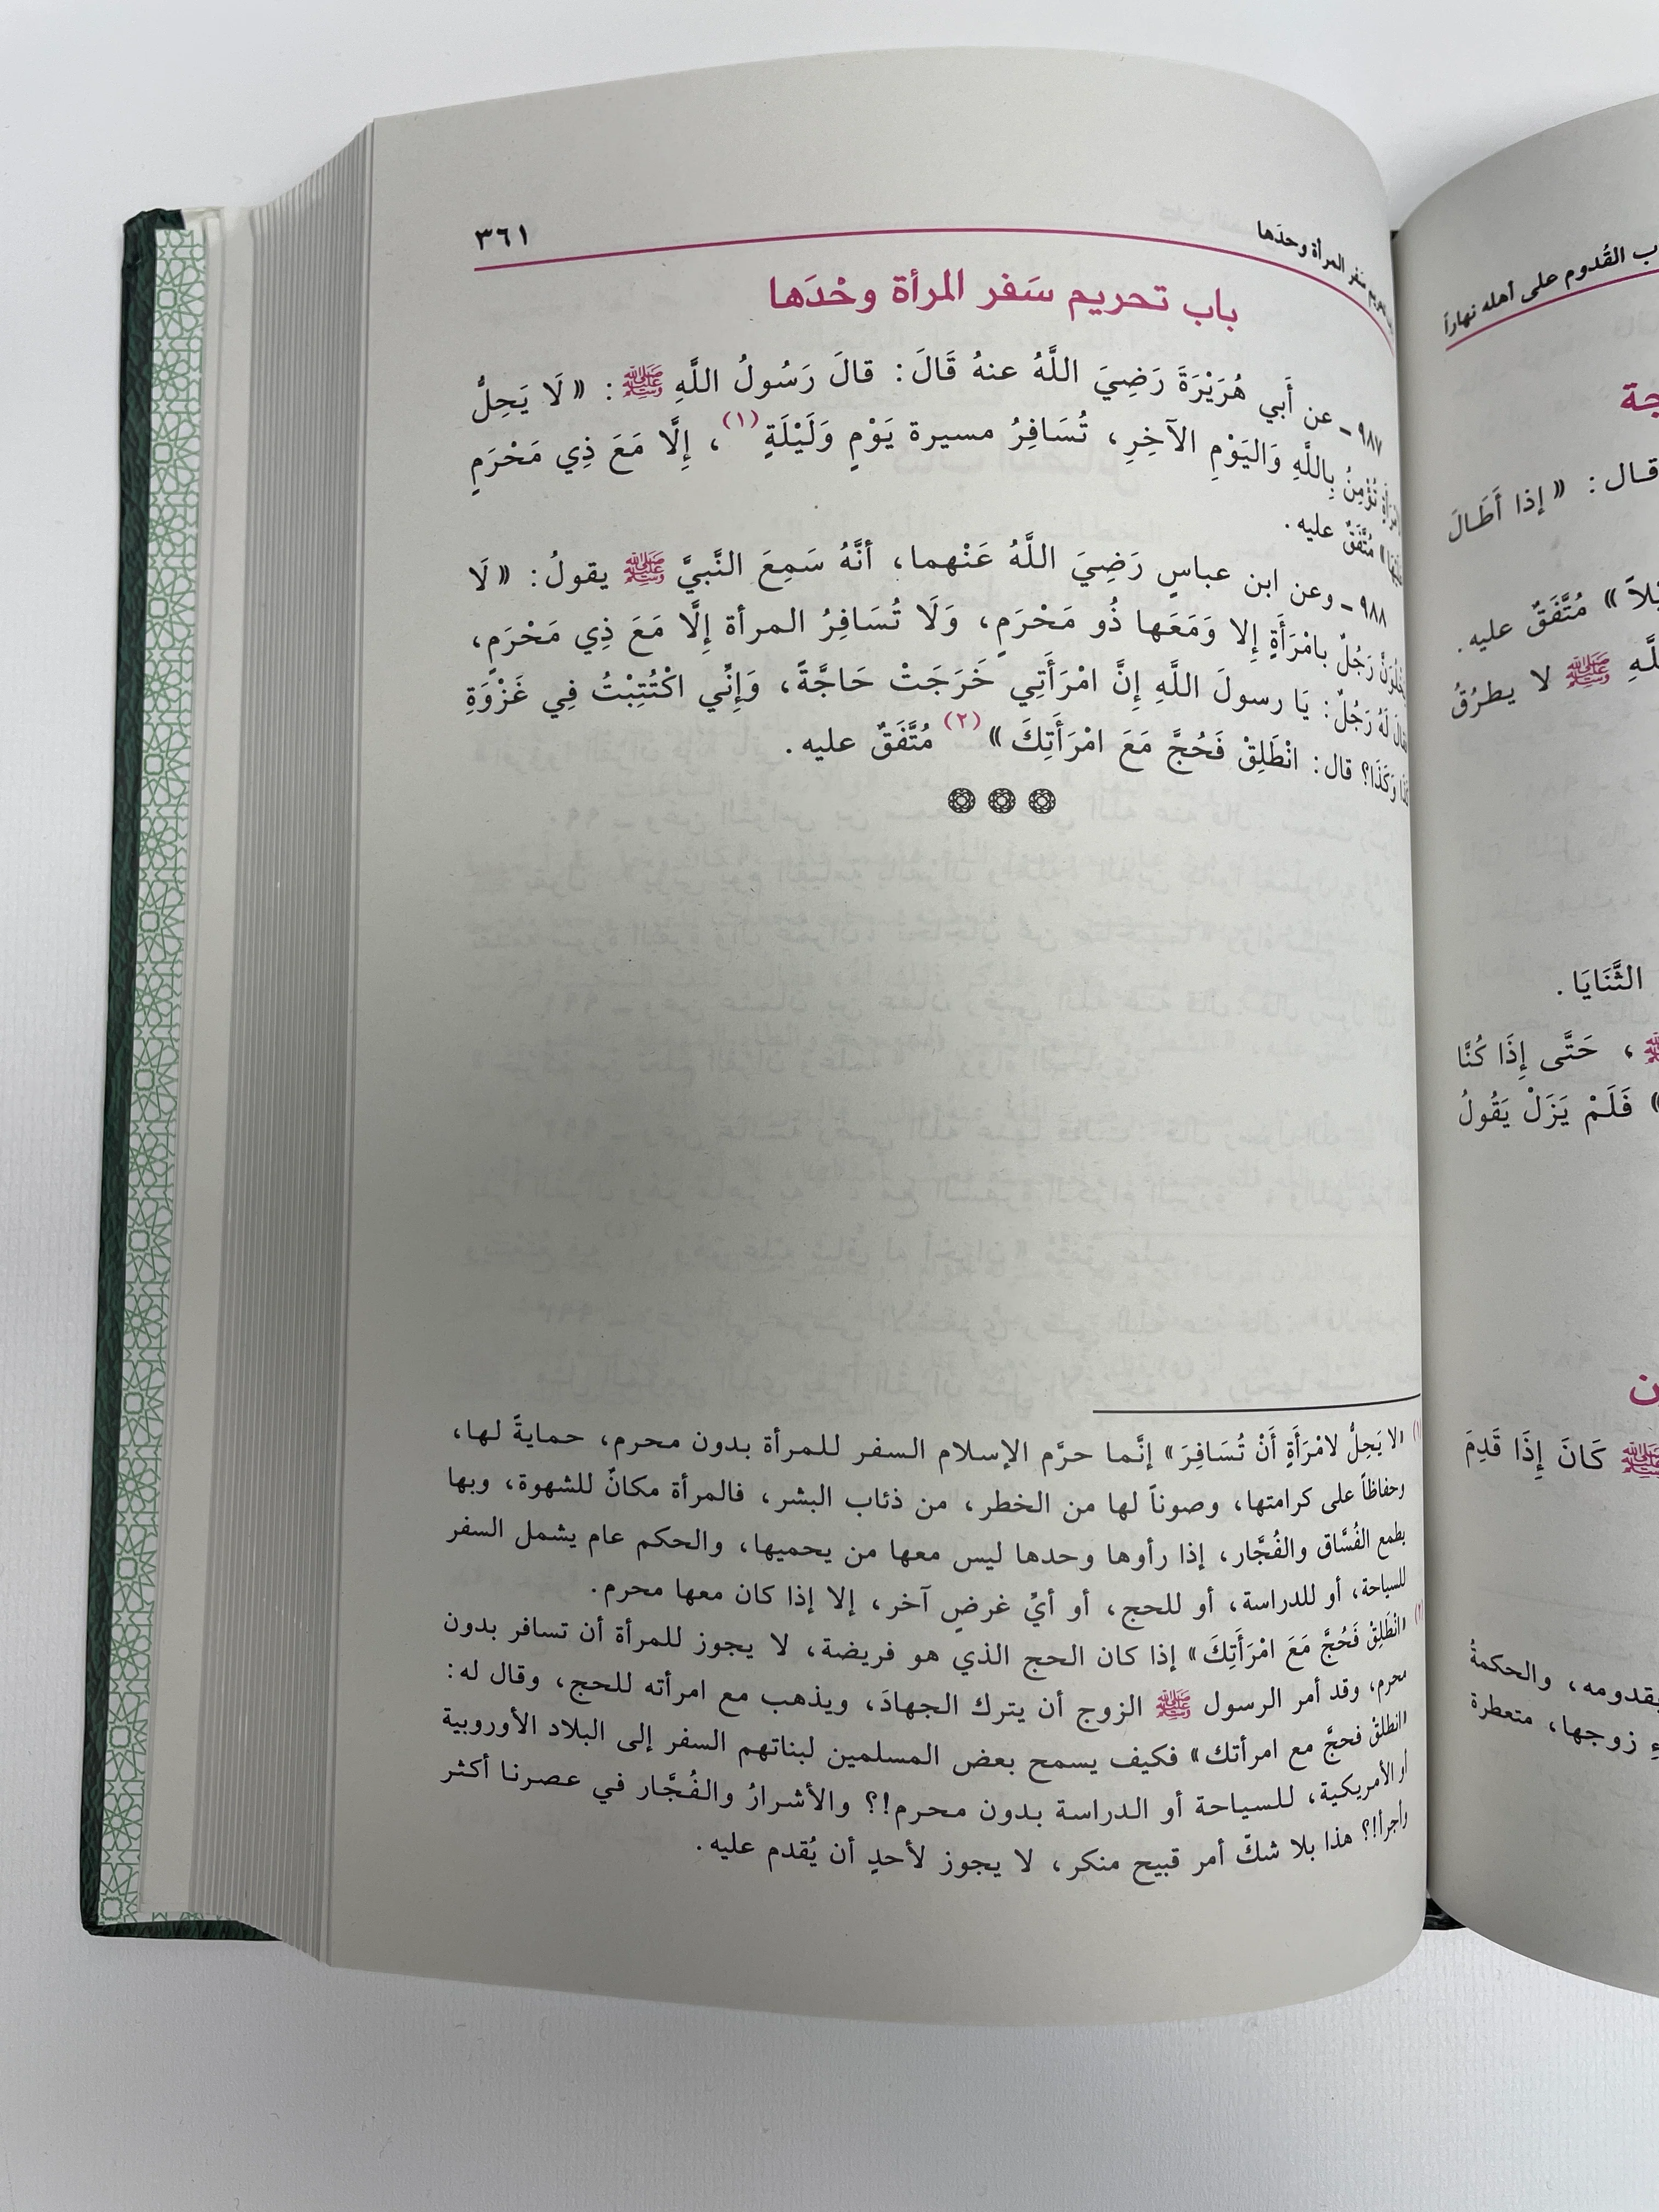 سَفر المرأة وحدَها
٣٦١
باب تحريم سَفر المرأة وحْدَها
٩٨٧ - عن أَبي هُرَيْرَةَ رَضِيَ اللَّهُ عنهُ قَالَ: قالَ رَسُولُ اللَّهِ ﷺ: «لَا يَحِلُّ
تُؤْمِنُ بِاللَّهِ وَاليَوْمِ الآخِرِ، تُسَافِرُ مسيرة يَوْمٍ وَلَيْلَةٍ(١)، إِلَّا مَعَ ذِي مَحْرَمٍ
مُتَّفَقٌ عليه.
٩٨٨ - وعن ابن عباسٍ رَضِيَ اللَّهُ عَنْهما، أنَّهُ سَمِعَ النَّبيَّ ﷺ يقولُ: «لَا
رَجُلٌ بامْرَأَةٍ إِلا وَمَعَها ذُو مَحْرَمٍ، وَلَا تُسَافِرُ المرأة إِلَّا مَعَ ذِي مَحْرَمٍ،
لَهُ رَجُلٌ: يَا رسولَ اللَّهِ إِنَّ امْرَأَتِي خَرَجَتْ حَاجَّةً، وَإِنِّي اكْتُتِبْتُ فِي غَزْوَةِ
وَكَذَا؟ قال: انْطَلِقْ فَحُجَّ مَعَ امْرَأَتِكَ»(٢) مُتَّفَقٌ عليه.
(١) «لا يَحِلُّ لامْرَأَةٍ أَنْ تُسَافِرَ» إنَّما حرَّم الإسلام السفر للمرأة بدون محرم، حمايةً لها،
وحفاظاً على كرامتها، وصوناً لها من الخطر، من ذئاب البشر، فالمرأة مكانٌ للشهوة، وبها
يطمع الفُسَّاق والفُجَّار، إذا رأوها وحدها ليس معها من يحميها، والحكم عام يشمل السفر
للسياحة، أو للدراسة، أو للحج، أو أيِّ غرضٍ آخر، إلا إذا كان معها محرم.
(٢) «انْطَلِقْ فَحُجَّ مَعَ امْرَأَتِكَ» إذا كان الحج الذي هو فريضة، لا يجوز للمرأة أن تسافر بدون
محرم، وقد أمر الرسول ﷺ الزوج أن يترك الجهادَ، ويذهب مع امرأته للحج، وقال له:
«انطلقْ فحجَّ مع امرأتك» فكيف يسمح بعض المسلمين لبناتهم السفر إلى البلاد الأوروبية
أو الأمريكية، للسياحة أو الدراسة بدون محرم!؟ والأشرارُ والفُجَّار في عصرنا أكثر
وأجرأ!؟ هذا بلا شكّ أمر قبيح منكر، لا يجوز لأحدٍ أن يُقدم عليه.
القُدوم على أهله نهاراً
قال: «إذا أَطَالَ
مُتَّفَقٌ عليه.
ﷺ لا يطرُقُ
الثَّنَايَا.
ﷺ، حَتَّى إِذَا كُنَّا
فَلَمْ يَزَلْ يَقُولُ
ﷺ كَانَ إِذَا قَدِمَ
بقدومه، والحكمةُ
زوجها، متعطرة